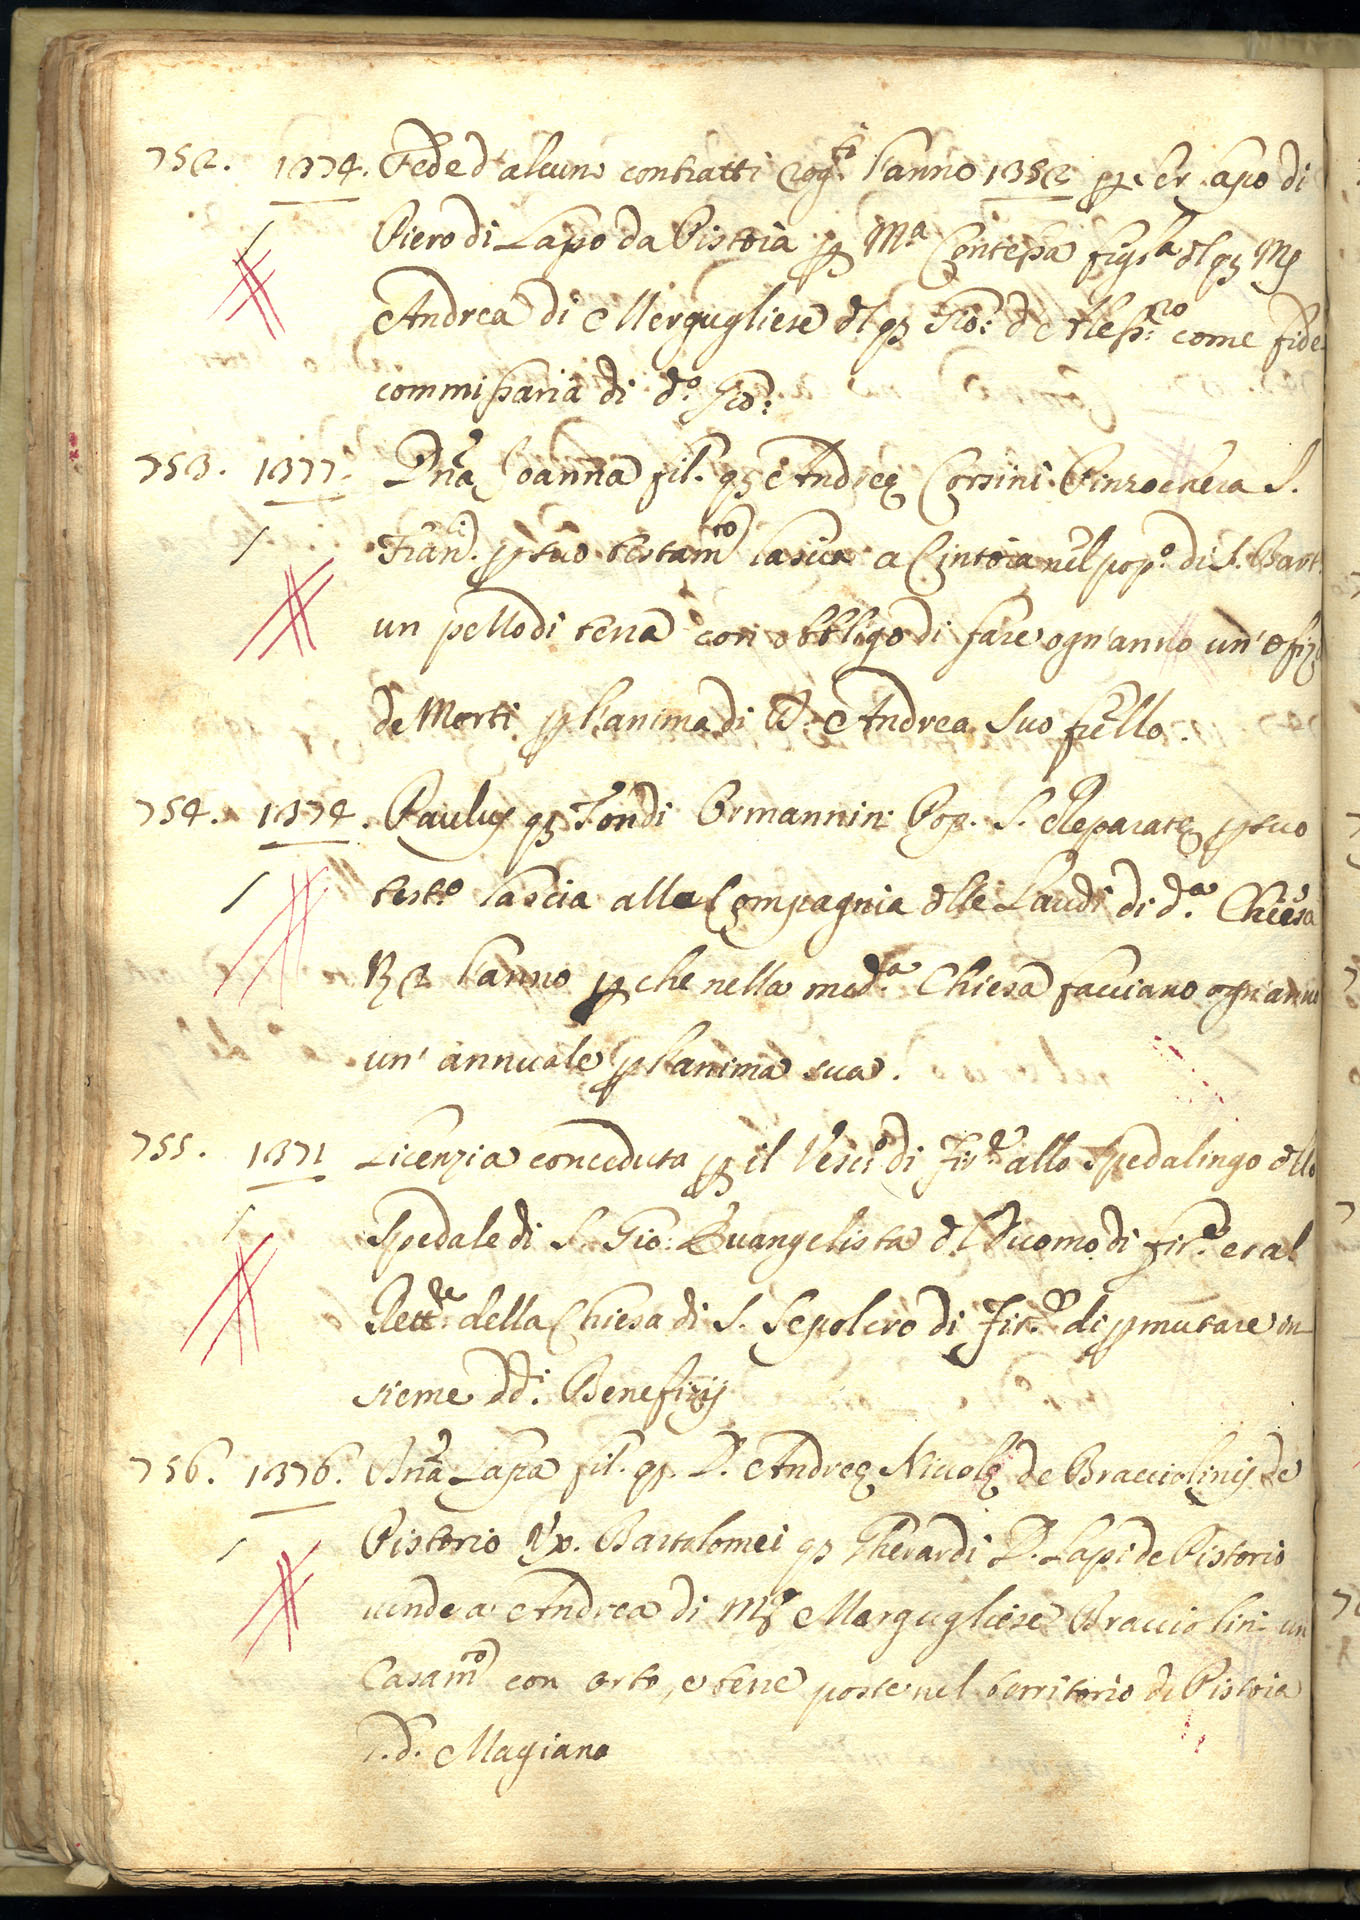 752. 1374. Fede d'alcuni contratti rog.ti l'anno 1352 p Ser Lapo di
Piero di Lapo da Pistoia p M.a Contessa figl.a dl q3 Mess
Andrea di Mergugliese dl q3 Gio: come fide
commissaria di d.o Gio:
753. 1377. Dna Joanna fil. q3 Andreę Corsini Pinzochera S.
Fran.ci p suo testam.to lascia a Cintoia nel pop.o di S. Bart.
un pezzo di terra con obbligo di fare ogn'anno un'ofiz
de Morti p l'anima di Andrea suo frello.
754. 1374. Paulus q3 Fondi Ormannini Pop. S. Reparatę p suo
test.o lascia alla Compagnia dlle Laudi di d.a Chiesa
l'anno p che nella med.a Chiesa facciano ogn'anno
un' annuale p l'anima sua.
755. 1371 Licenzia conceduta p il Vesc.o di Fir.e allo Spedalingo dllo
Spedale di S. Gio: Evangelista dl Duomo di Fir.e et al
Rett.re della Chiesa di S. Sepolcro di Fir.e di pmutare in
sieme dd.i Benefizij
756. 1376. Dna Lapa fil. q3. D. Andreę Nicolę de Bracciolinis de
Pistorio Ux. Bartolomei q3 Gherardi D. Lapi de Pistorio
vende a Andrea di Mess Mergugliese Bracciolini un
Casam.to con orto, e terre poste nel territorio di Pistoia
l.d. Magiano